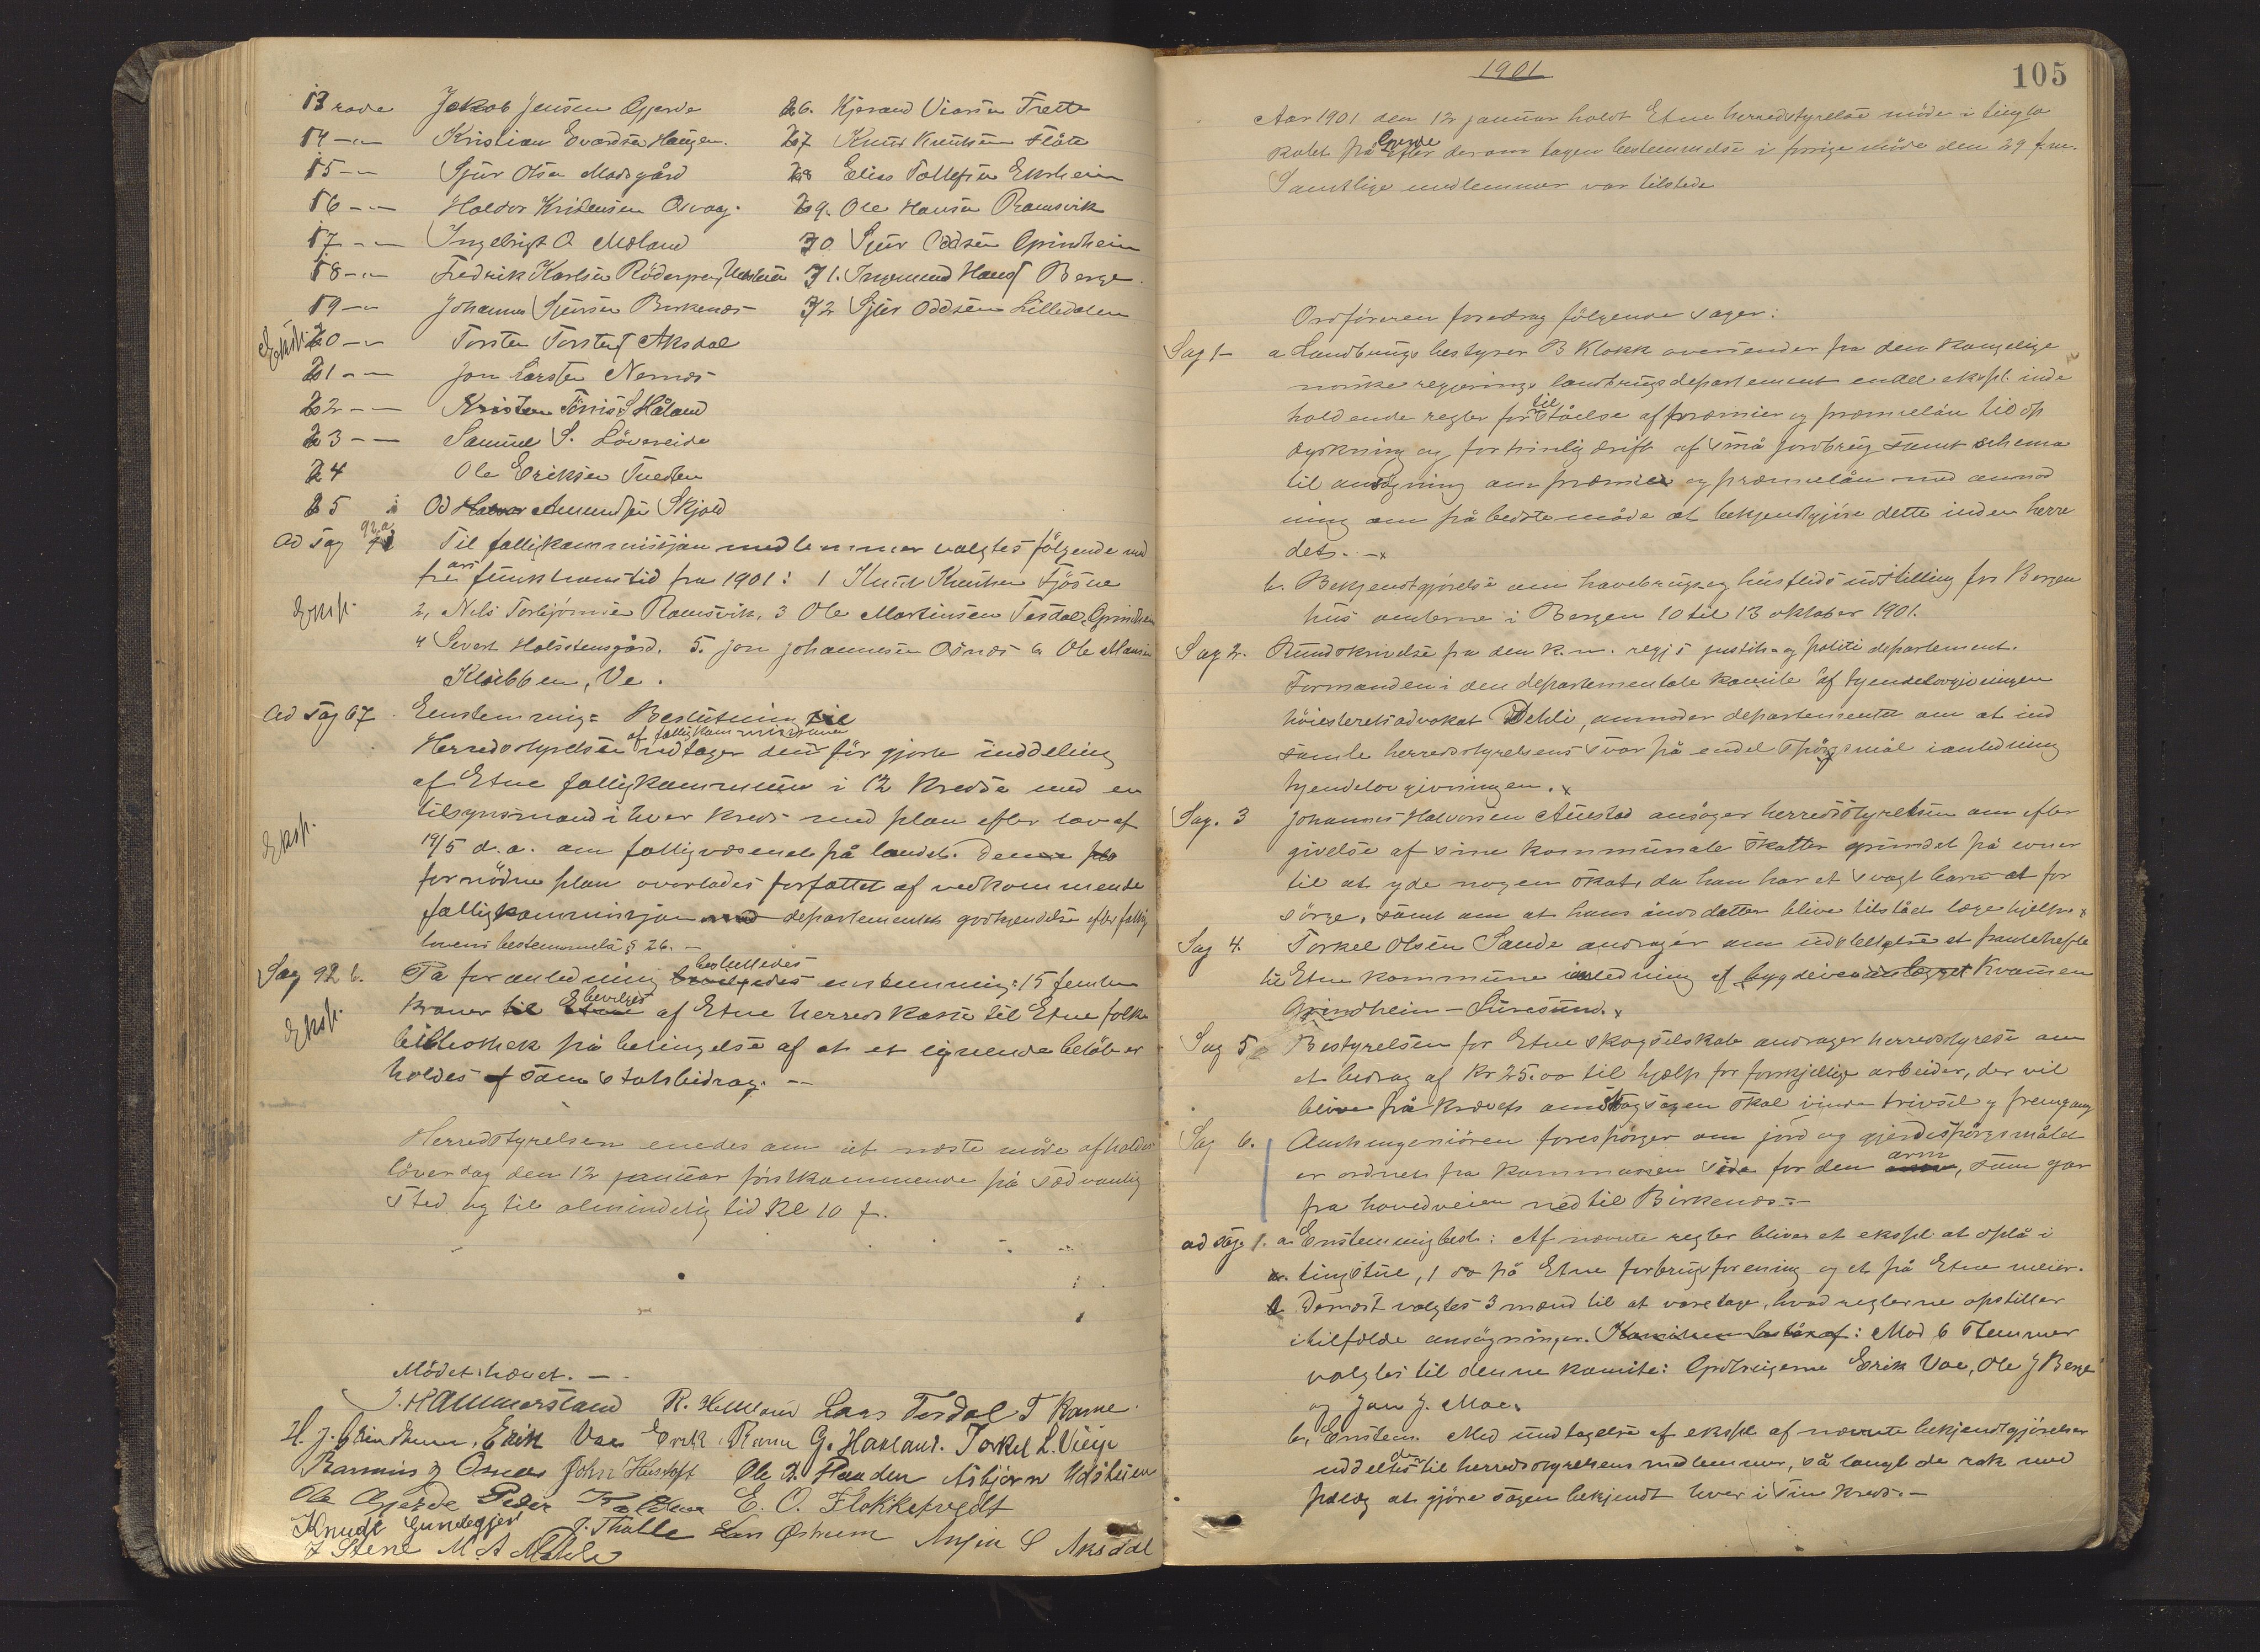 13 rode Jakob Jensen Gjerde
14 -"- Kristian Evardsen Haugen.
15 -"- Sjur Olsen Madsgård
16 -"- Haldor Kristensen Osvaag.
17 -"- Ingebrigt O Mæland
18 -"- Fredrik Karlsen
19 -"- Johannes Sjursen Birkenæs
Eksp. 20 -"- Torsten Torstens Aksdal
21 -"- Jon Larsen Nernæs
22 -"- Kristen Tönnes S Håland
23 -"- Samuel S. Lövereide
24 Ole Eriksen Tueden
25 Od Amundsen Skjold
26. Kjerand Viarsen Trette
27 Knut Knutsen Flåte
28 Elias Tollefsen Enrheim
29. Ole Hansen Ramsvik
30 Sjur Oddsen Grindheim
31. Ingemund Hans Berge.
32 Sjur Oddsen Lilledalen
Ad sag 92.a Til fattigkommissjon medlemmer valgtes fölgende med
tre års funktionstid fra 1901: 1 Knut Knutsen Fjösne
Eksp. 2, Nils Torbjörnsen Ramsvik, 3 Ole Martinsen Tesdal, Grindheim
4 Sivert Halstensgård. 5. Jon Johannesen Osnæs 6 Ole Hansen
Kleibben, Ve.
Ad sag 67. Enstemmig Beslutning
Herredstyrelsen vedtager den af fattigkommissionen för gjorte inddeling
af Etne fattigkommune i 12 kredse med en
tilsynsmand i hver kreds med plan efter lov af
Eksp. 19/5 d.a. om fattigvæsenet på landet. Denne
fornödne plan overlades forfattet af vedkommende
fattigkommissjon departementets godkjendelse efter fattig
lovens bestemmelse § 26. -
Sag 92 b. På foranledning besluttedes enstemmig: 15 femten
Eksp. kroner bevilges af Etne herredskasse til Etne folke
bibliothek på betingelse af at et lignende beløb er
holdes som statsbidrag. -
Herredstyrelsen enedes om at næste möde afholdes
löverdag den 12 januar förstkommende på sædvanlig
sted og til almindelig tid kl 10 f.
Mödet hævet. -
J. Hammersland R. Helland Lars Tesdal T Rame.
H. J. Grindheim, Erik Vae Erik Rame G. Haaland. Torkel L. Vinje
Rasmus J Osnes John Hustoft Ole D. Haaden Asbjørn Udsteien
Ole Gjerde Peder E. O. Flokketvedt
Knudt Gundegjerd J. Tholle Lars Østrem S Aksdal
J Stene M A
1901
105
Aar 1901 den 12 januar holdt Etne herredstyrelse möde i tinglo
kalet på Enge efter derom tagen bestemmelse i forrige möde den 29 f.m.
Samtlige medlemmer var tilstede
Ordföreren foredrog fölgende sager:
Sag 1- a Landbrugsbestyrer B Klokk oversender fra den kongelige
norske regjerings landbrugsdepartement endel ekspl. inde
holdende regler for tilståelse af præmier og præmielån til op
dyrkning og fortrinlig drift af små jordbrug samt schema
til ansögning om præmie og præmielån med anmod
ning om på bedste måde at bekjendtgjöre dette inden herre
det. -x
b. Bekjendtgjörelse om havebrugs og husflids udstilling for Bergen
hus amterne i Bergen 10 til 13 oktober 1901.
Sag 2. Rundskrivelse fra den k. n. regj s justits og politi departement.
Formanden i den departementale komite af tyendelovgivningen
höiesteretsadvokat Dehli, anmoder departementet om at ind
samle herredsstyrelsens svar på endel spörgsmål i anledning
tyendelovgivningen. x
Sag. 3 Johannes Halvorsen Austad ansöger herredsstyrelsen om efter
givelse af sine kommunale skatter grundet på evner
til at yde nogen skat, da han har et svagt barn at for
sörge, samt om at hans åndsdatter blive tilstået lægehjelp x
Sag 4. Torkel Olsen Sande andrager om udbetalelse et pantehefte
til Etne kommune i anledning af bygdeveien Kvamen
Grindheim - Suresund. x
Sag 5 Bestyrelsen for Etne skogselskab andrager herredsstyrelse om
et bidrag af kr 25.00 til hjelp for forskjellige arbeider, der vil
blive på krævet om skogsagen skal vinde trivsel og fremgang
Sag 6. Amtsingeniören forespörger om jord og gjerdespörgsmålet
er ordnet fra kommunen side for den arm, som går
fra hovedveien ned til Birkenæs. -
ad sag 1. a. Enstemmig besl.: Af nævnte regler blives et ekspl at opslå i
tingstue, 1 do på Etne forbrugsforening og et på Etne meieri.
Dernæst valgtes 3 mænd til at varetage, hvad reglerne opstiller
i tilfælde ansögninger. : Mod 6 stemmer
valgtes til denne komite: Gårdbrugerne Erik Vae, Ole J Berge
og Jan J. Moe.
b, Enstem. Med undtagelse af ekspl af nævnte bekjendtgjörelser
uddeltes der til herredsstyrelsens medlemmer, så langt de rak med
pålæg at gjöre sagen bekjendt hver i sin kreds. -